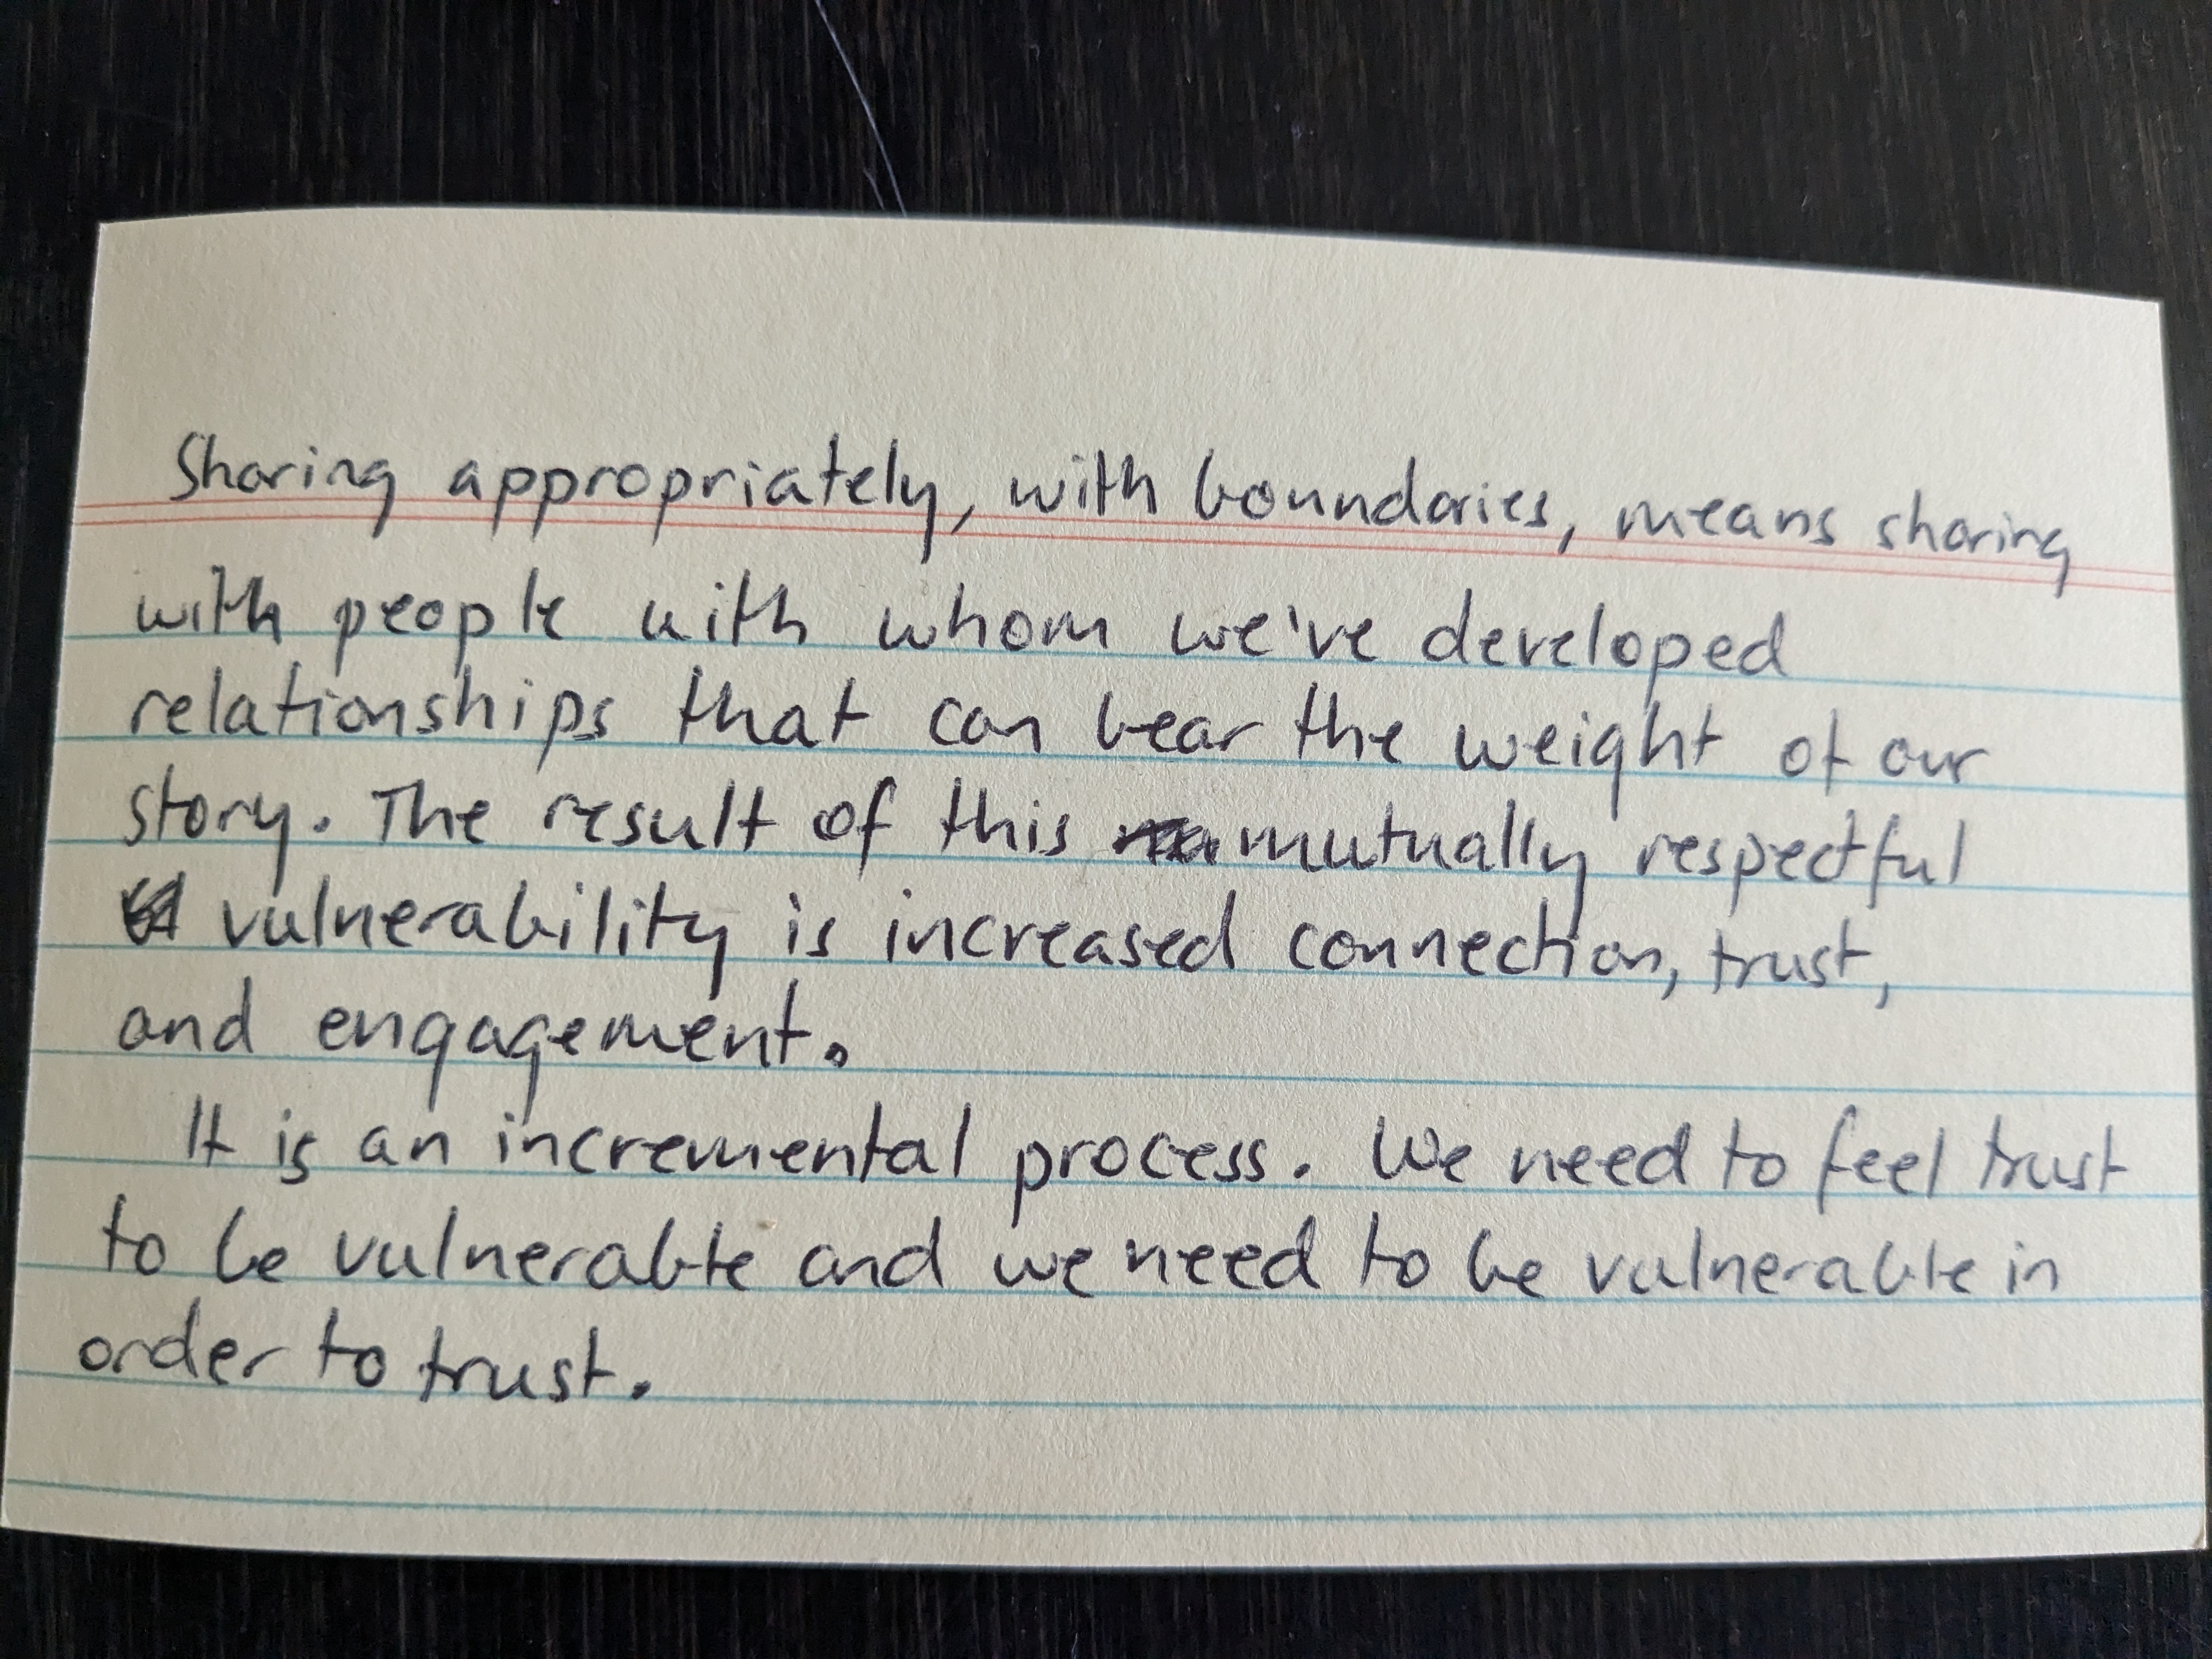 Sharing appropriately, with boundaries, means sharing
with people with whom we've developed
relationships that can bear the weight of our
story. The result of this mutually respectful
vulnerability is increased connection, trust,
and engagement.
It is an incremental process. We need to feel trust
to be vulnerable and we need to be vulnerable in
order to trust.